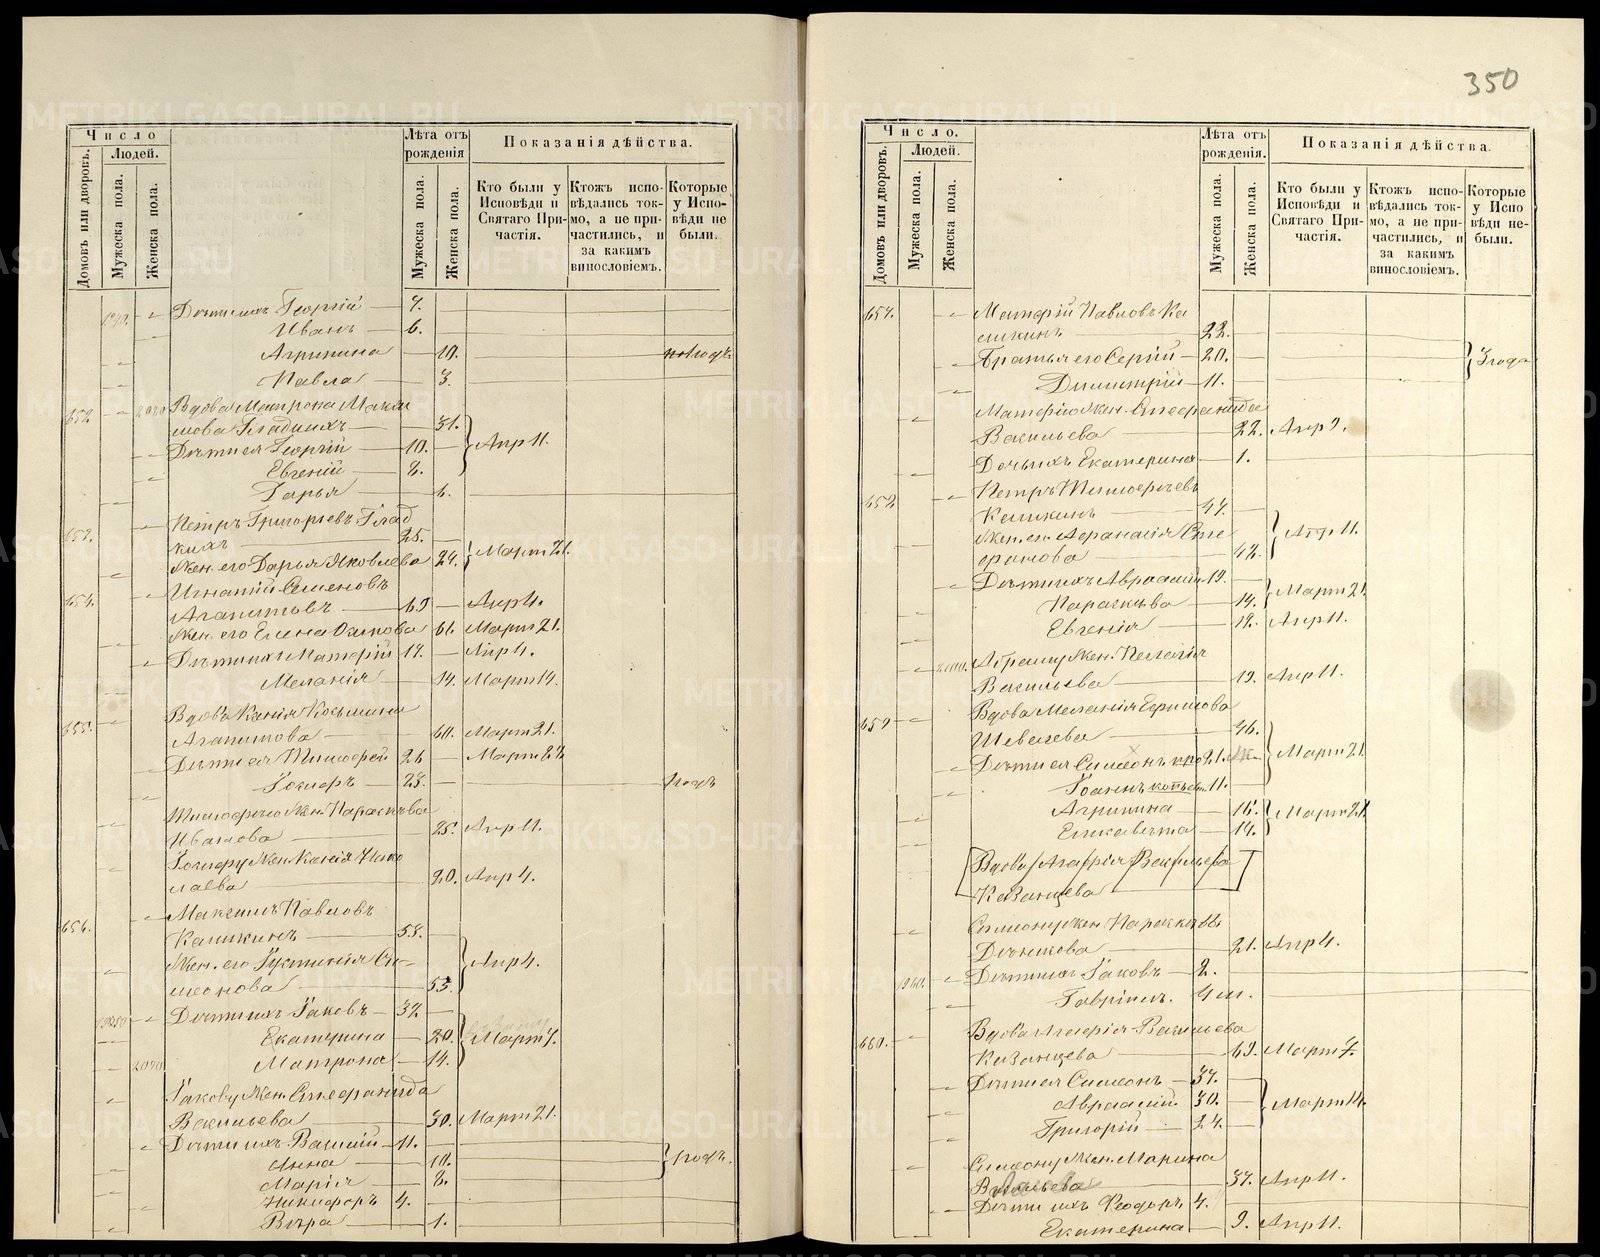 350
Число
Людей.
Домовъ или дворовъ.
Мужеска пола.
Женска пола.
Лѣта отъ
рожденія
Мужеска пола.
Женска пола.
Показанія дѣйства.
Кто были у
Исповѣди и
Святаго При-
частія.
Ктожъ испо-
вѣдались ток-
мо, а не при-
частились, и
за какимъ
винословіемъ.
Которые
у Испо-
вѣди не
были.
Дѣти ихъ Георгій 7.
Иванъ 6.
Агрипина 10.
Павла 3.
652
Вдова Матрона Макси
мова Гладкихъ 31.
Дѣти ея Георгій 10. Апр 11.
Евгеній 8.
Дарья 6.
653.
Петръ Григорьевъ Глад
кихъ 25.
Жен. его Дарья Яковлева 24. Март 21.
654.
Игнатий Семеновъ
Агапитовъ 69 Апр 4.
Жен. его Елена Осипова 61. Март 21.
Дѣти ихъ Матфій 17. Апр 4.
Меланія 14. Март 14.
655.
Вдова Ксенія Косьмина
Агапитова 60. Март 21.
Дѣти ея Тимофей 26 Март 22
23.
Тимофею Жен. Параскѣва
Иванова 25. Апр 11.
Жен. Ксенія Нико
лаева 20. Апр 4.
656.
Максимъ Павловъ
Кашкинъ 53.
Жен. его Іустинія Си-
меонова 53. Апр 4.
Дѣти ихъ Іаковъ 32
Екатерина 20. Март 7.
Матрона 14.
Іакову Жен. Стефанида
Васильева 30. Март 21.
Дѣти ихъ Василій 11.
Анна 10.
Марія 8.
Никифоръ 4.
Вѣра 1.
Число.
Людей.
Домовъ или дворовъ.
Мужеска пола.
Женска пола.
Лѣта отъ
рожденія.
Мужеска пола.
Женска пола.
Показанія дѣйства.
Кто были у
Исповѣди и
Святаго При-
частія.
Ктожъ испо-
вѣдались ток-
мо, а не при-
частились, и
за какимъ
винословіемъ.
Которые
у Испо
вѣди не-
были.
657.
Матфій Павловъ Ка
шкинъ 22.
Братья его Сергій 20. 3 года
Димитрій 11.
Матфію Жен. Стефанида
Васильева 22. Апр 9.
Дочь ихъ Екатерина 1.
658
Петръ Тимофеевъ
Кашкинъ 47.
Жен. его Афанасія Сте
фанова 42. Апр 11.
Дѣти ихъ Авраамій 19.
Параскѣва 14. Март 21.
Евгенія 12. Апр 11.
Жен. Пелагія
Васильева 19. Апр 11.
659
Вдова Меланія Ефимова
Шевелева 46.
Дѣти ея Симеонъ 21. Март 21.
Іоаннъ 11.
Агрипина 16. Март 21.
Елисавета 14.
Вдова Агафія Васильева
Казанцева
Симеону жен. Параскѣва
21. Апр 4.
Дѣти ихъ Іаковъ 2.
Гавріилъ. 4 м.
660.
Вдова Агафія Васильева
Казанцева 69. Март 7.
Дѣти ея Симеонъ 37.
Авраамій 30. Март 14.
Григорій 24.
Симеону Жен. Марина
37. Апр 11.
Дѣти ихъ Феодоръ 4.
Екатерина 9. Апр 11.
METRIKI.GASO-URAL.RU